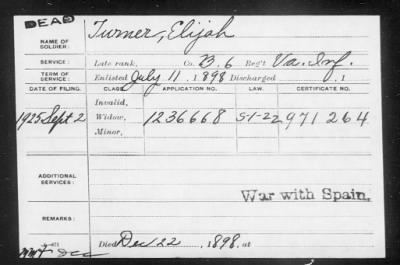 DEAD
NAME OF SOLDIER: Turner, Elijah
SERVICE: Late rank, Co. B. 6 Reg't Va. Inf.
TERM OF SERVICE: Enlisted July 11, 1898 Discharged , 1
DATE OF FILING. CLASS. APPLICATION NO. LAW. CERTIFICATE NO.
Invalid,
1925 Sept 2 Widow, 1236668 S-1-22 971 264
Minor,
ADDITIONAL SERVICES:
War with Spain.
REMARKS:
Died Dec 22, 1898, at